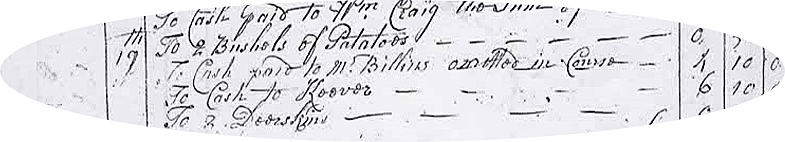 To Cash paid to Wm Craig the Sum of
th To 2 Bushels of Patatoes 0
19 To Cash paid to Mr Billins omitted in Course 4 10 0
To Cash to Hoover 6 10
To 2 Deerskins